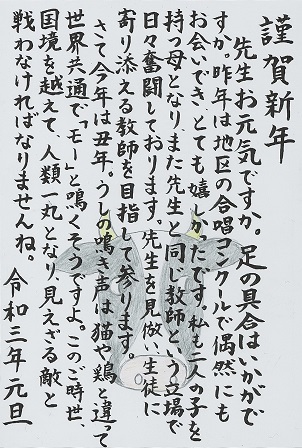 謹賀新年
先生お元気ですか。足の具合はいかがで
すか。昨年は地区の合唱コンクールで偶然にも
お会いでき、とても嬉しかったです。私も二人の子を
持つ母となり、また先生と同じ教師という立場で
日々奮闘しております。先生を見倣い、生徒に
寄り添える教師を目指して参ります。
さて、今年は丑年。うしの鳴き声は猫や鶏と違って
世界共通で、「モー」と鳴くそうですよ。このご時世、
国境を越えて、人類一丸となり、見えざる敵と
戦わなければなりませんね。
令和三年元旦